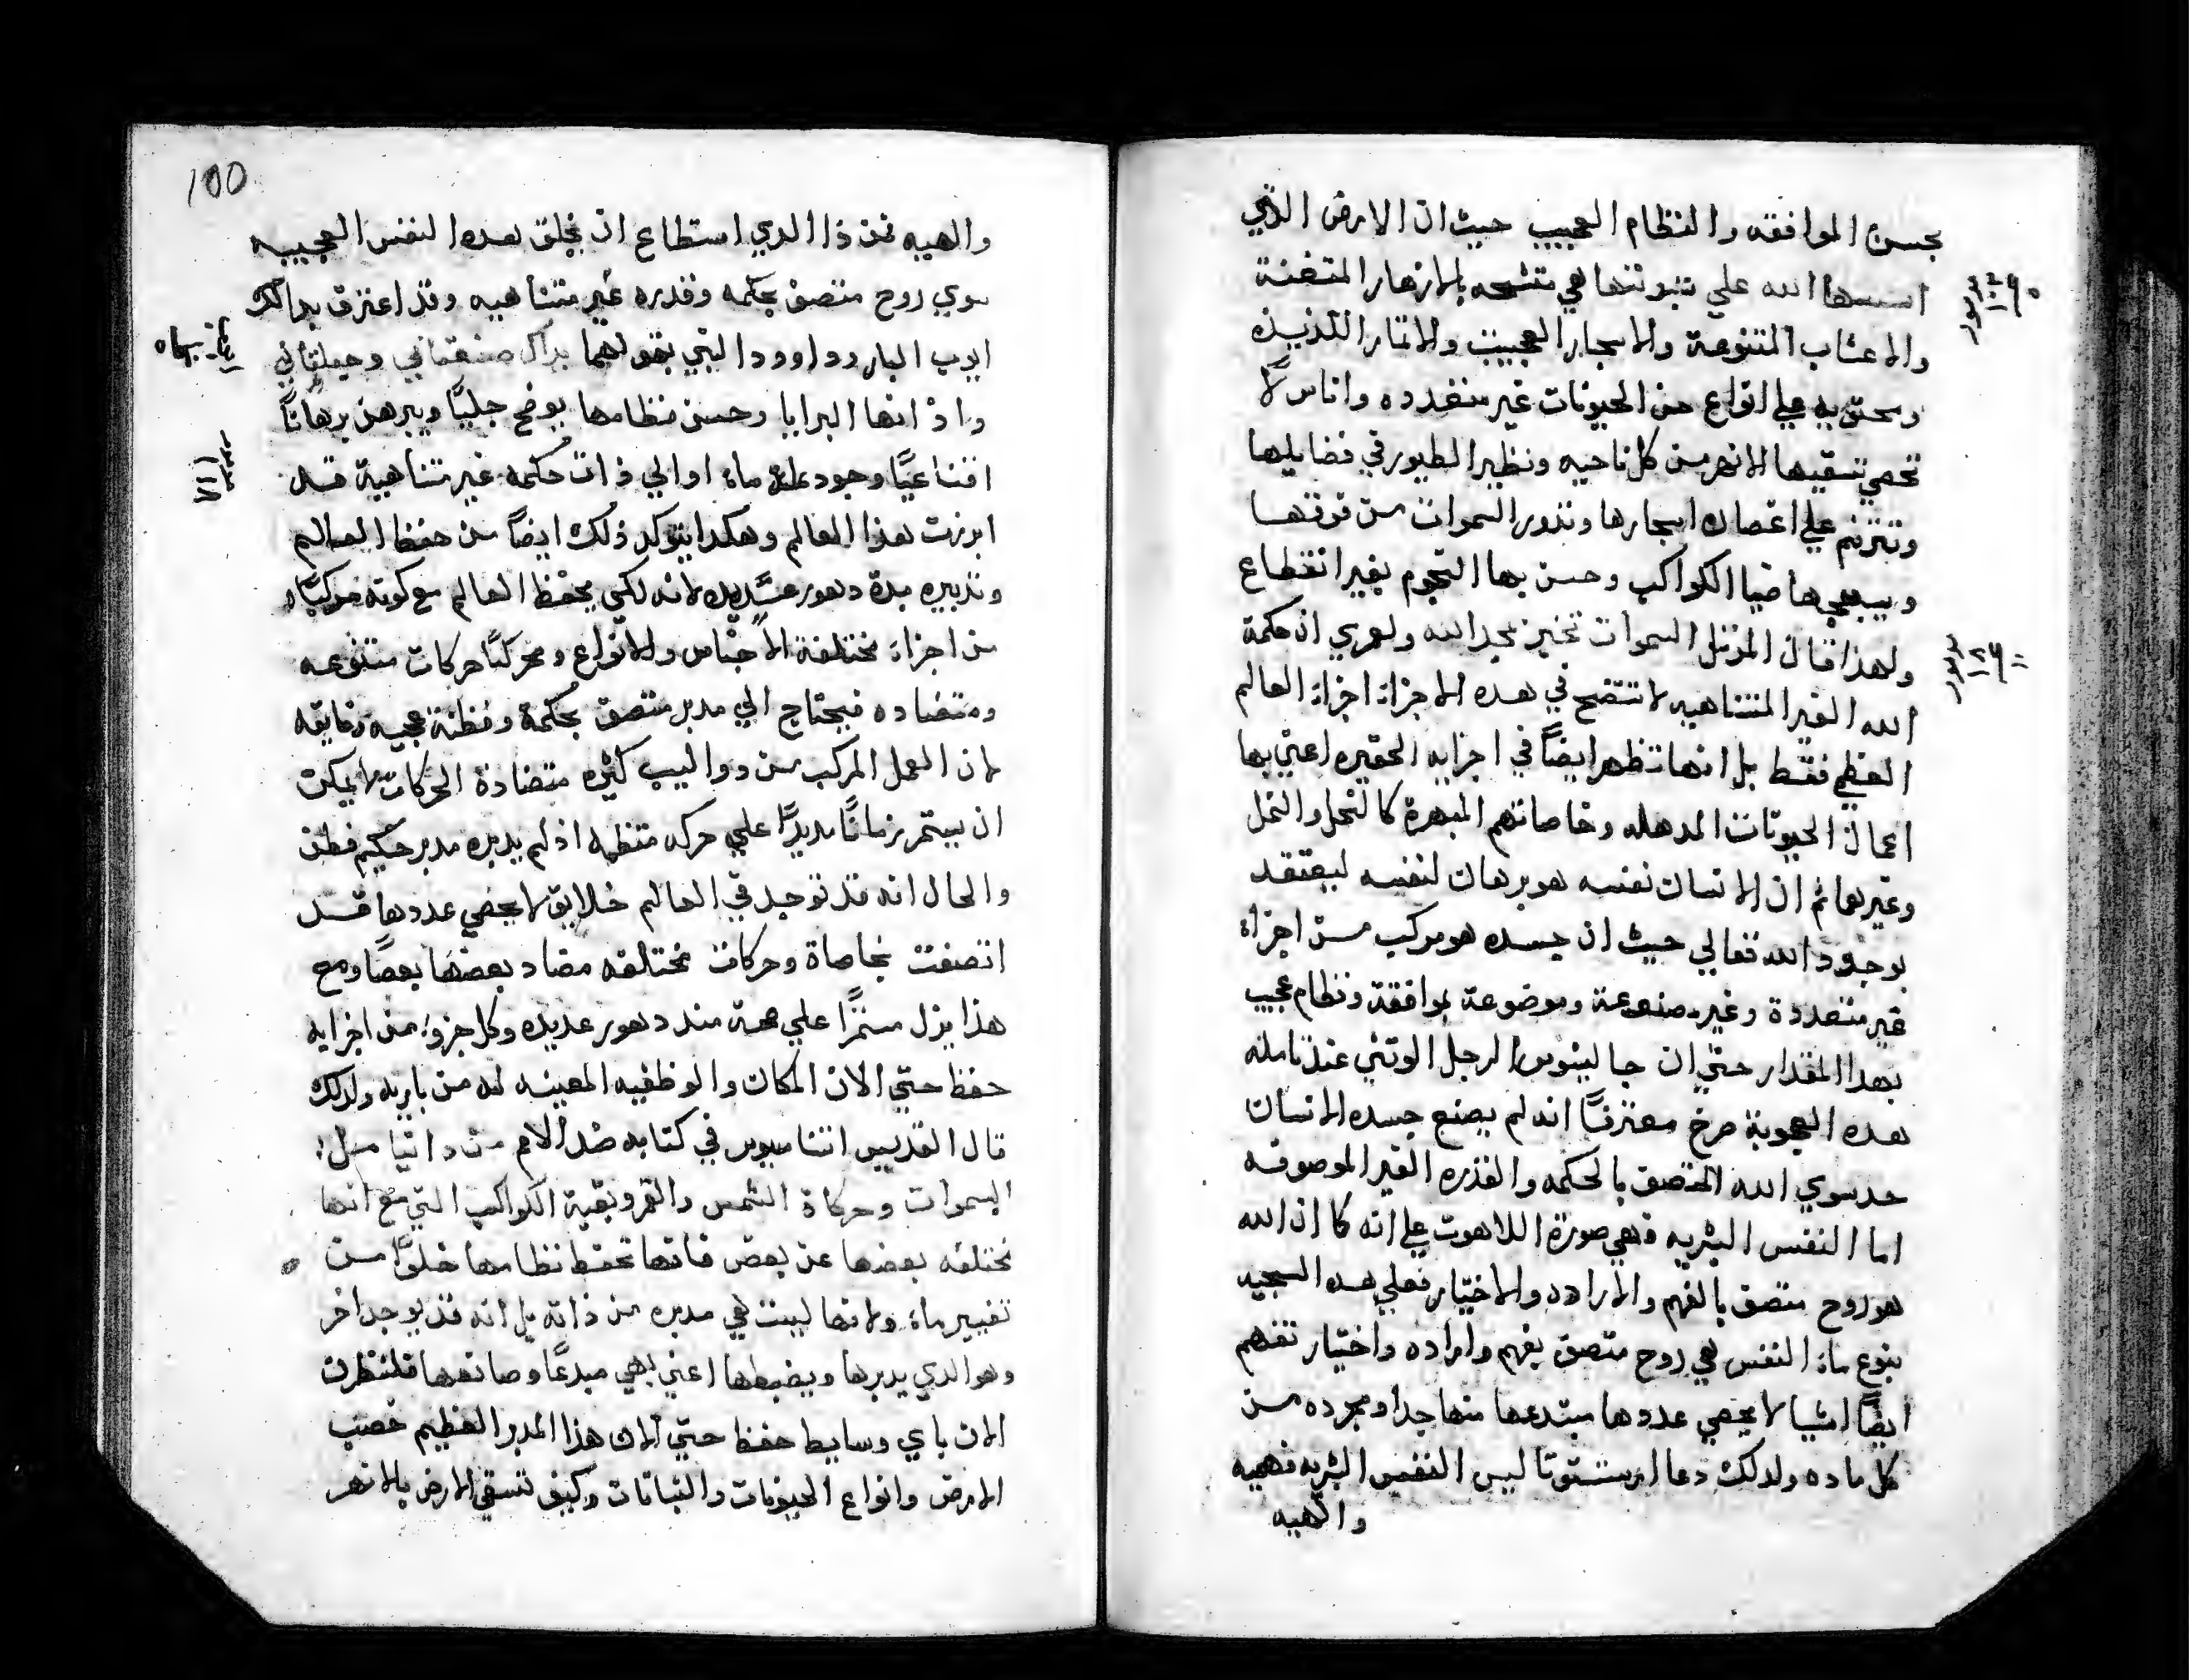 بحسن الموافقه والنظام العجيب حيث ان الارض الذي
اسسها الله علي تبوتتها هي متشحه بالازهار المتفننة
والاعشاب المتنوعة والاسجار العجيبت والاتمار اللذيذه
ومحتويه علي انواع من الحيونات غير منعدده واناس لا
تحصي تسقيها الانهر من كل ناحيه وتطير الطيور في فضايلها
وتترنم علي اغصان اسجارها وتدور السموات من فوقها
ويبهجها ضيا الكواكب وحسن بها النجوم بغير انقطاع
ولهذا قال المرتل السموات تخبر بمجد الله ولعمري ان حكمة
الله الغير المتناهيه لا تتضح في هده الاجزاء اجزاء العالم
العظيم فقط بل انها تظهر ايضاً في اجزايه الحقيره اعني بها
اعمال الحيونات المدهله وخاصاتهم المبهرة كالنحل والنمل
وغيرها ثم ان الانسان نفسه هو برهان لنفسه ليعتقد
بوجود الله تعالي حيث ان جسده هو مركب من اجزاء
غير منعددة وغير مصنوعة وموضوعة بموافقة ونظام عجيب
بهدا المقدار حتي ان جالينوس الرجل الوتني عند تامله
هده العجوبة صرخ معترفاً انه لم يصنع جسده الانسان
احد سوي الله المتصف بالحكمه والقدره الغير الموصوفه
اما النفس البشريه فهي صورة اللاهوت علي انه كما ان الله
هو روح متصف بالفهم والاراده والاختيار فعلي هده السجيه
بنوع ماء النفس هي روح متصف بفهم واراده واختيار تفهم
ايضاً اشيا لا يحصي عددها مبتدعها منها جدا ومجرده من
كل ماده ولدلك دعا ارسستوتاليس النفس البشريه فهميه
والهيه
100
والهيه فمن ذا الدي استطاع ان يخلق هده النفس العجيبه
سوي روح متصف بحكمه وقدره غير متناهيه وقد اعترف بدالك
ايوب البار وداوود النبي بقولهما يداك صنعتاني وجبلتاني
واذ انها البرايا وحسن نظامها يوضح جلياً ويبرهن برهاناً
اقناعياً وجود علة ماء اوالي ذات حكمه غير متناهية قد
ابرزت هذا العالم وهكدا يتوكد ذلك ايضاً من حفظ العالم
وتدبيره مدة دهور عديده لانه لكي يحفظ العالم مع كونه مركباً
من اجزاء مختلفة الاجناس والانواع ومحركاً حركات متنوعه
ومتضاده فيحتاج الي مدبر متصف بحكمة وفطنة عجيبه وفايقه
لان العمل المركب من دواليب كثيره متضادة الحركات لا يمكن
ان يستمر زماناً مديداً علي حركه منتظمه اذ لم يدبره مدبر حكيم فطن
والحال انه قد توجد في العالم خلايق لا يحصي عددها قد
اتصفت بخاصاة وحركات مختلفه مضاد بعضها بعضاً ومع
هذا يزل مستمراً علي صحة مند دهور عديده وكل جزوء من اجزايه
حفظ حتي الان المكان والوظفيه المعينه له من باريه ولدلك
قال القديس اتناسيوس في كتابه ضد الامم
السموات وحركاة الشمس والقمر وبقية الكواكب التي مع انها
مختلفه بعضها عن بعض فانها تحفظ نظامها خلواً من
تغيير ماء ولانها ليست هي مدبره من ذاته بل انه قد يوجد اخر
وهو الدي يدبرها ويضبطها اعني بهي مبدعاً وصانعها فلننظرن
الان باي وسايط حفظ حتي الان هذا المدبر العظيم خصب
الارض وانواع الحيونات والنباتات وكيف تسقي الارض بالانهر